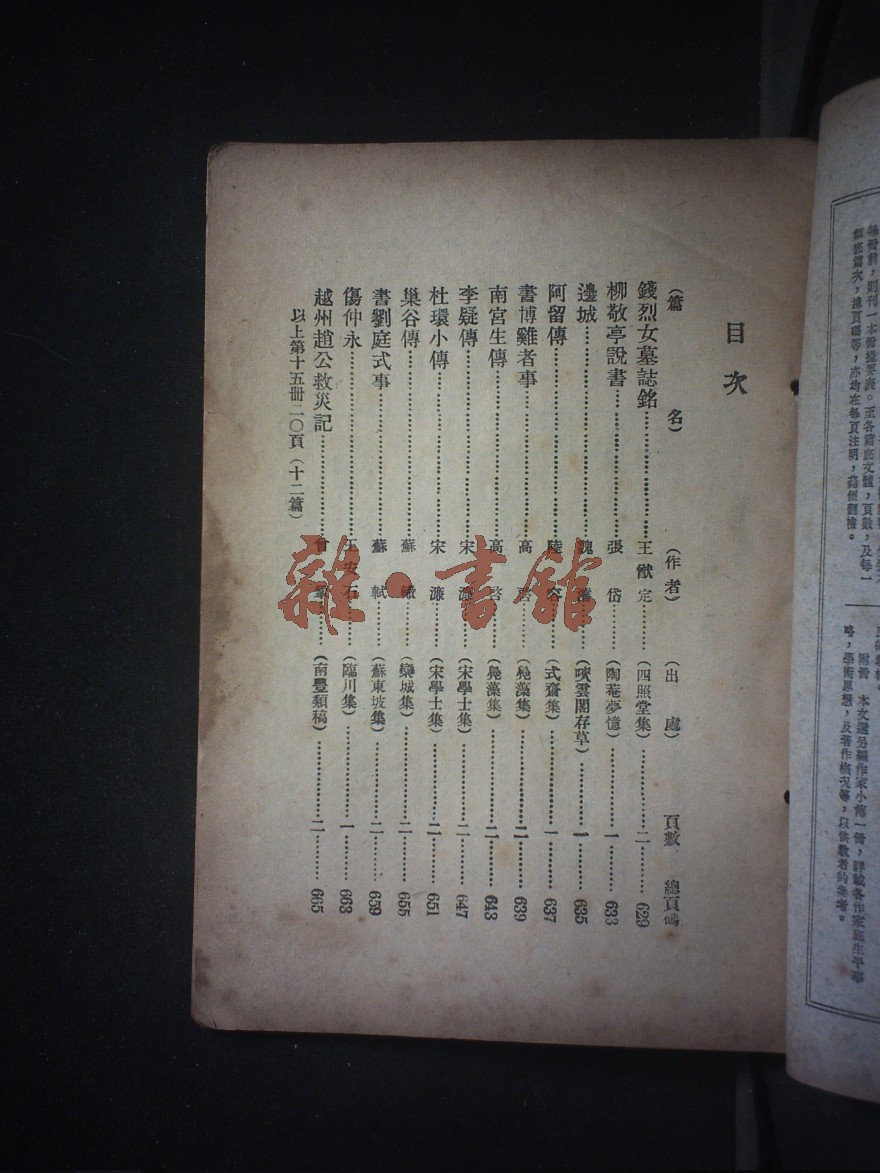 目次
(篇名) (作者) (出處) 頁數 總頁碼
錢烈女墓誌銘 王猷定 (四照堂集) 二 629
柳敬亭說書 張岱 (陶菴夢憶) 一 633
邊城 魏 (吷雲閣存草) 一 635
阿留傳 陸容 (式齋集) 一 637
書博雞者事 高啓 (鳧藻集) 二 639
南宮生傳 高啓 (鳧藻集) 二 643
李疑傳 宋濂 (宋學士集) 二 647
杜環小傳 宋濂 (宋學士集) 二 651
巢谷傳 蘇轍 (欒城集) 二 655
書劉庭式事 蘇軾 (蘇東坡集) 二 659
傷仲永 王安石 (臨川集) 一 663
越州趙公救災記 曾鞏 (南豐類稿) 二 665
以上第十五冊二〇頁(十二篇)
雜·書館
每冊前,則刊一本冊提要表。至各篇底文體,頁數,及每一
類底篇次,總頁碼等,亦均在每頁注明,藉便翻檢。
附冊 本文選另編作家小傳一冊,詳載各作家底生平事
略,學術思想,及著作概況等,以供教者的參考。